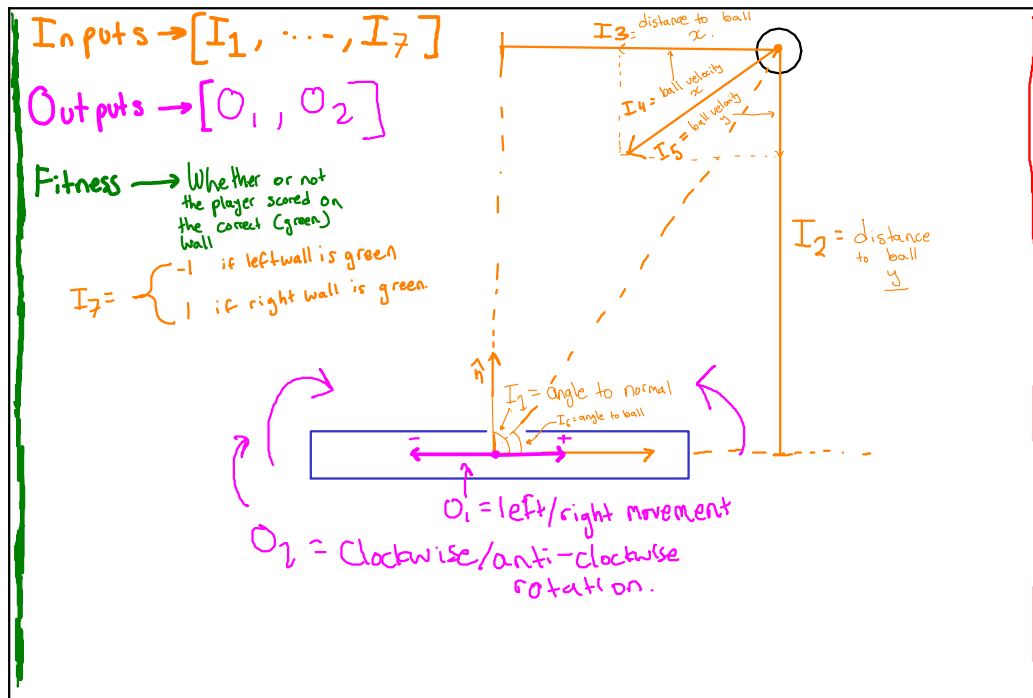 Inputs → [I₁, ...., I₇]
Outputs → [O₁, O₂]
Fitness → Whether or not
the player scored on
the correct (green)
wall
I₇ = { -1 if left wall is green
1 if right wall is green.
I3 = distance to ball
x.
I4 = ball velocity
x
I5 = ball velocity
y
I₂ = distance
to ball
y
n̂
I₁ = angle to normal
I₆ = angle to ball
- +
O₁ = left/right movement
O₂ = Clockwise/anti-clockwise
rotation.